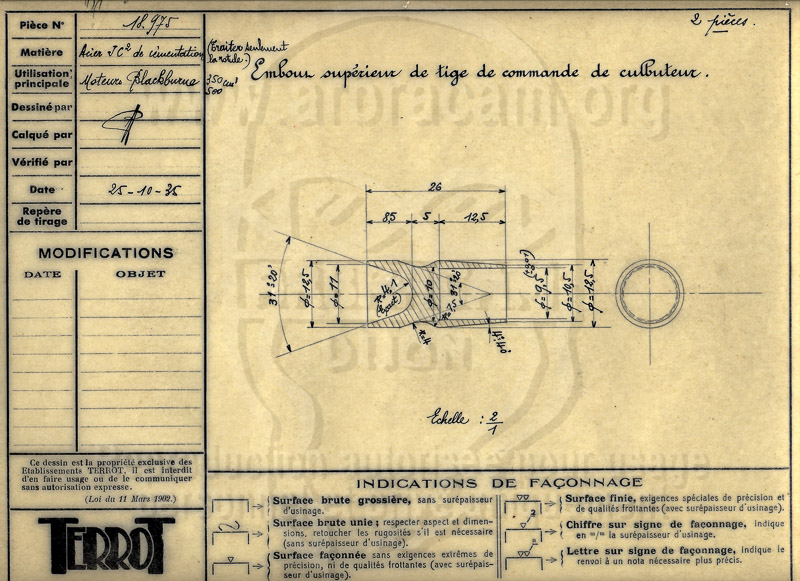 Pièce N° 18.975
Matière Acier JC² de cémentation (Traiter seulement la rotule.)
Utilisation principale Moteurs Blackburne 350 cm³ 500
Dessiné par
Calqué par
Vérifié par
Date 25-10-35
Repère de tirage
MODIFICATIONS
DATE OBJET
Ce dessin est la propriété exclusive des
Etablissements TERROT, il est interdit
d'en faire usage ou de le communiquer
sans autorisation expresse.
(Loi du 11 Mars 1902.)
TERROT
2 pièces.
Embout supérieur de tige de commande de culbuteur.
www.arbracam.org
26
8,5 5 12,5
31°20'
φ=12,5
φ=11
R=4,1
(Exact)
φ=10
31°20'
R=1,5
R=4
4°40'
φ=9,5
φ=10,5
φ=12,5
Echelle : 2/1
INDICATIONS DE FAÇONNAGE
Surface brute grossière, sans surépaisseur
d'usinage.
Surface brute unie ; respecter aspect et dimen-
sions, retoucher les rugosités s'il est nécessaire
(sans surépaisseur d'usinage).
Surface façonnée sans exigences extrêmes de
précision, ni de qualités frottantes (avec surépais-
seur d'usinage).
Surface finie, exigences spéciales de précision et
de qualités frottantes (avec surépaisseur d'usinage).
Chiffre sur signe de façonnage, indique
en =/= la surépaisseur d'usinage.
Lettre sur signe de façonnage, indique le
renvoi à un nota nécessaire plus précis.